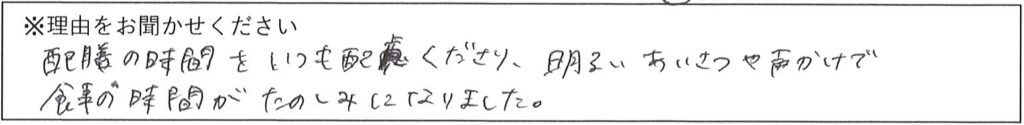 ※理由をお聞かせください
配膳の時間をいつも配慮くださり、明るいあいさつや声かけで
食事の時間がたのしみになりました。